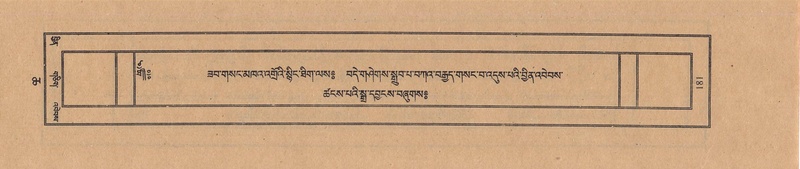 ཟབ་གསང་མཁའ་འགྲོའི་སྙིང་ཐིག་ལས༔ བདེ་གཤེགས་སྒྲུབ་པ་བཀའ་བརྒྱད་གསང་བ་འདུས་པའི་བྱིན་འབེབས་
ཚངས་པའི་སྒྲ་དབྱངས་བཞུགས༔
181